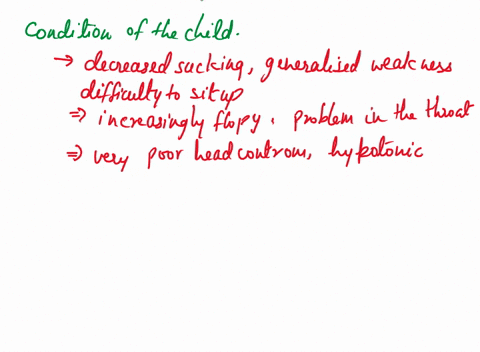 Condition of the child.
→ decreased sucking, generalised weakness
difficulty to sit up
⇒ increasingly flopy. problem in the throat
⇒ very poor head controm, hypotonic